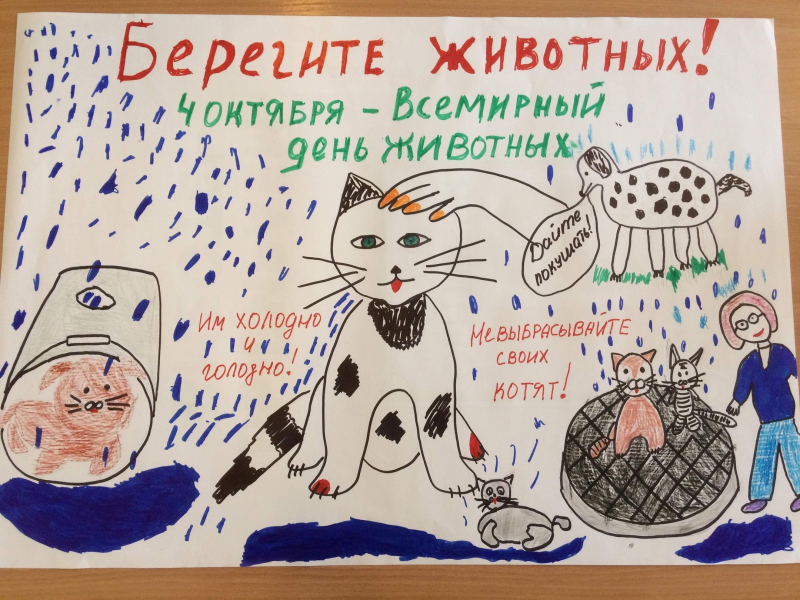 Берегите животных!
4 октября - Всемирный
день животных
Дайте
покушать!
Им холодно
и
голодно!
Невыбрасывайте
своих
котят!